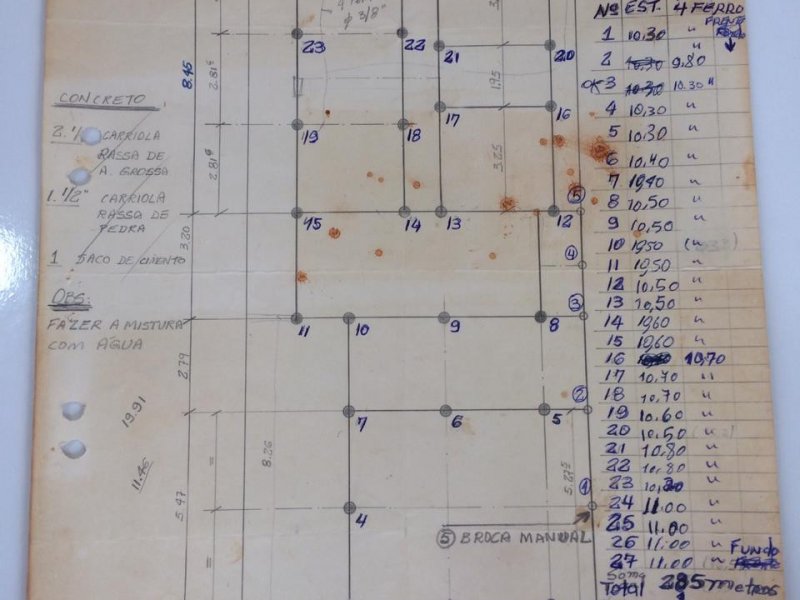 Nº EST. 4 FERRO
FRENTE
1 10,30 "
2 9.80 "
OK 3 10.30 "
4 10,30 "
5 10,30 "
6 10,40 "
7 10,40 "
8 10,50 "
9 10,50 "
10 10,50 "
11 10,50 "
12 10,50 "
13 10,50 "
14 10,60 "
15 10,60 "
16 10,70
17 10,70 "
18 10,70 "
19 10,60 "
20 10,50
21 10,80 "
22 10,80 "
23
24 11.00 "
25 11.00 "
26 11,00 " FUNDO
27 11,00
Soma
Total 285 metros
CONCRETO
2. CARRIOLA
RASSA DE
A. GROSSA
1. 1/2" CARRIOLA
RASSA DE
PEDRA
1 SACO DE CIMENTO
OBS:
FAZER A MISTURA
COM ÁGUA
19.91
11.46
φ 3/8"
23 22 21 20
8.45
2.81⁵
1.95
17 16
19 18
2.81⁵
3.25
⑤
15 14 13 12
3.20
④
③
11 10 9 8
2.79
②
7 6 5
8.26
5.27⁵
5.47
=
=
①
4
⑤ BROCA MANUAL